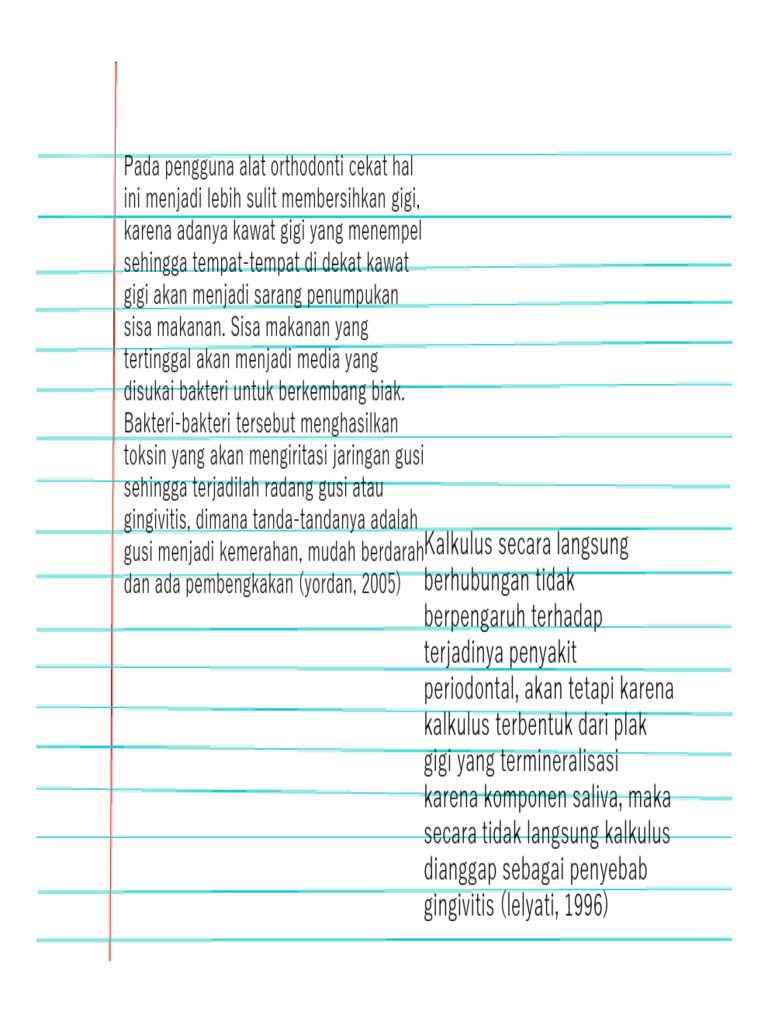 Pada pengguna alat orthodonti cekat hal
ini menjadi lebih sulit membersihkan gigi,
karena adanya kawat gigi yang menempel
sehingga tempat-tempat di dekat kawat
gigi akan menjadi sarang penumpukan
sisa makanan. Sisa makanan yang
tertinggal akan menjadi media yang
disukai bakteri untuk berkembang biak.
Bakteri-bakteri tersebut menghasilkan
toksin yang akan mengiritasi jaringan gusi
sehingga terjadilah radang gusi atau
gingivitis, dimana tanda-tandanya adalah
gusi menjadi kemerahan, mudah berdarah
dan ada pembengkakan (yordan, 2005)
Kalkulus secara langsung
berhubungan tidak
berpengaruh terhadap
terjadinya penyakit
periodontal, akan tetapi karena
kalkulus terbentuk dari plak
gigi yang termineralisasi
karena komponen saliva, maka
secara tidak langsung kalkulus
dianggap sebagai penyebab
gingivitis (lelyati, 1996)